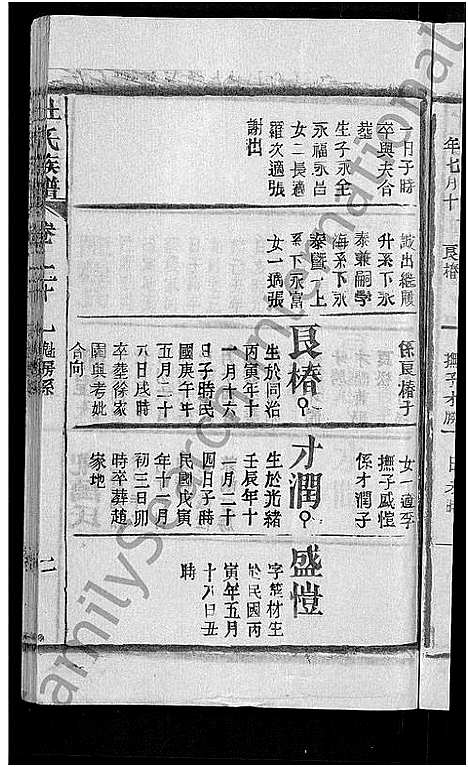 年七月十
良椿
撫子才
一日子時
卒與夫合
葬
生子永全
永福永昌
女二長適
羅次適張
謝出
升系下永
泰兼嗣學
海系下永
泰暨一上
系下永富
女一適張
係良椿子
良椿
生於同治
丙寅年十
一月十六
日子時民
國庚午年
五月二十
八日戌時
卒葬徐家
園與考妣
合向
女一適李
撫子盛愷
係才潤子
才潤
生於光緒
壬辰年十
一月二十
四日子時
民國戊寅
年十一月
初三日卯
時卒葬趙
家地
盛愷
字笕材生
於民國丙
寅年五月
十八日丑
時
杜氏族譜
卷二十一
魁房系
FamilySearch International